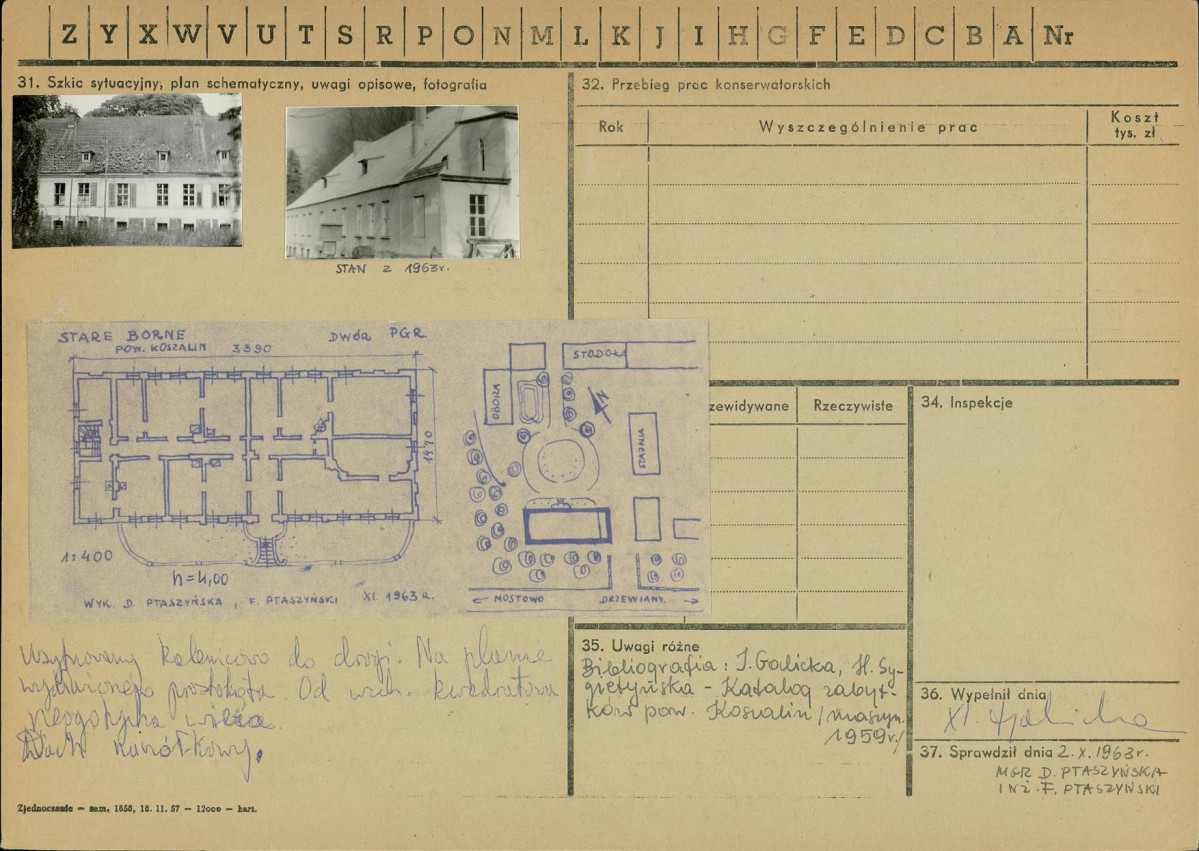 Z Y X W V U T S R P O N M L K J I H G F E D C B A Nr
31. Szkic sytuacyjny, plan schematyczny, uwagi opisowe, fotografia
STAN Z 1963r.
STARE BORNE
POW. KOSZALIN
3390
DWÓR PGR
1470
1:400
h=4,00
WYK. D. PTASZYŃSKA, F. PTASZYŃSKI XI. 1963 r.
STODOŁA
OBORA
N
STAJNIA
← MOSTOWO
DRZEWIANY →
Usytuowany kalenicowo do drogi. Na planie
wydłużonego prostokąta. Od wsch. kwadratowa
neogotycka wieża.
Dach naczółkowy.
Zjednoczenie – zam. 1858, 18. 11. 57 – 12000 – kart.
32. Przebieg prac konserwatorskich
Rok
Wyszczególnienie prac
Koszt
tys. zł
zewidywane
Rzeczywiste
34. Inspekcje
35. Uwagi różne
Bibliografia: I. Galicka, H. Sy-
gietyńska – Katalog zabyt-
ków pow. Koszalin /maszyn.
1959r./
36. Wypełnił dnia
XI.
37. Sprawdził dnia 2.X.1963r.
MGR D. PTASZYŃSKA
INŻ. F. PTASZYŃSKI